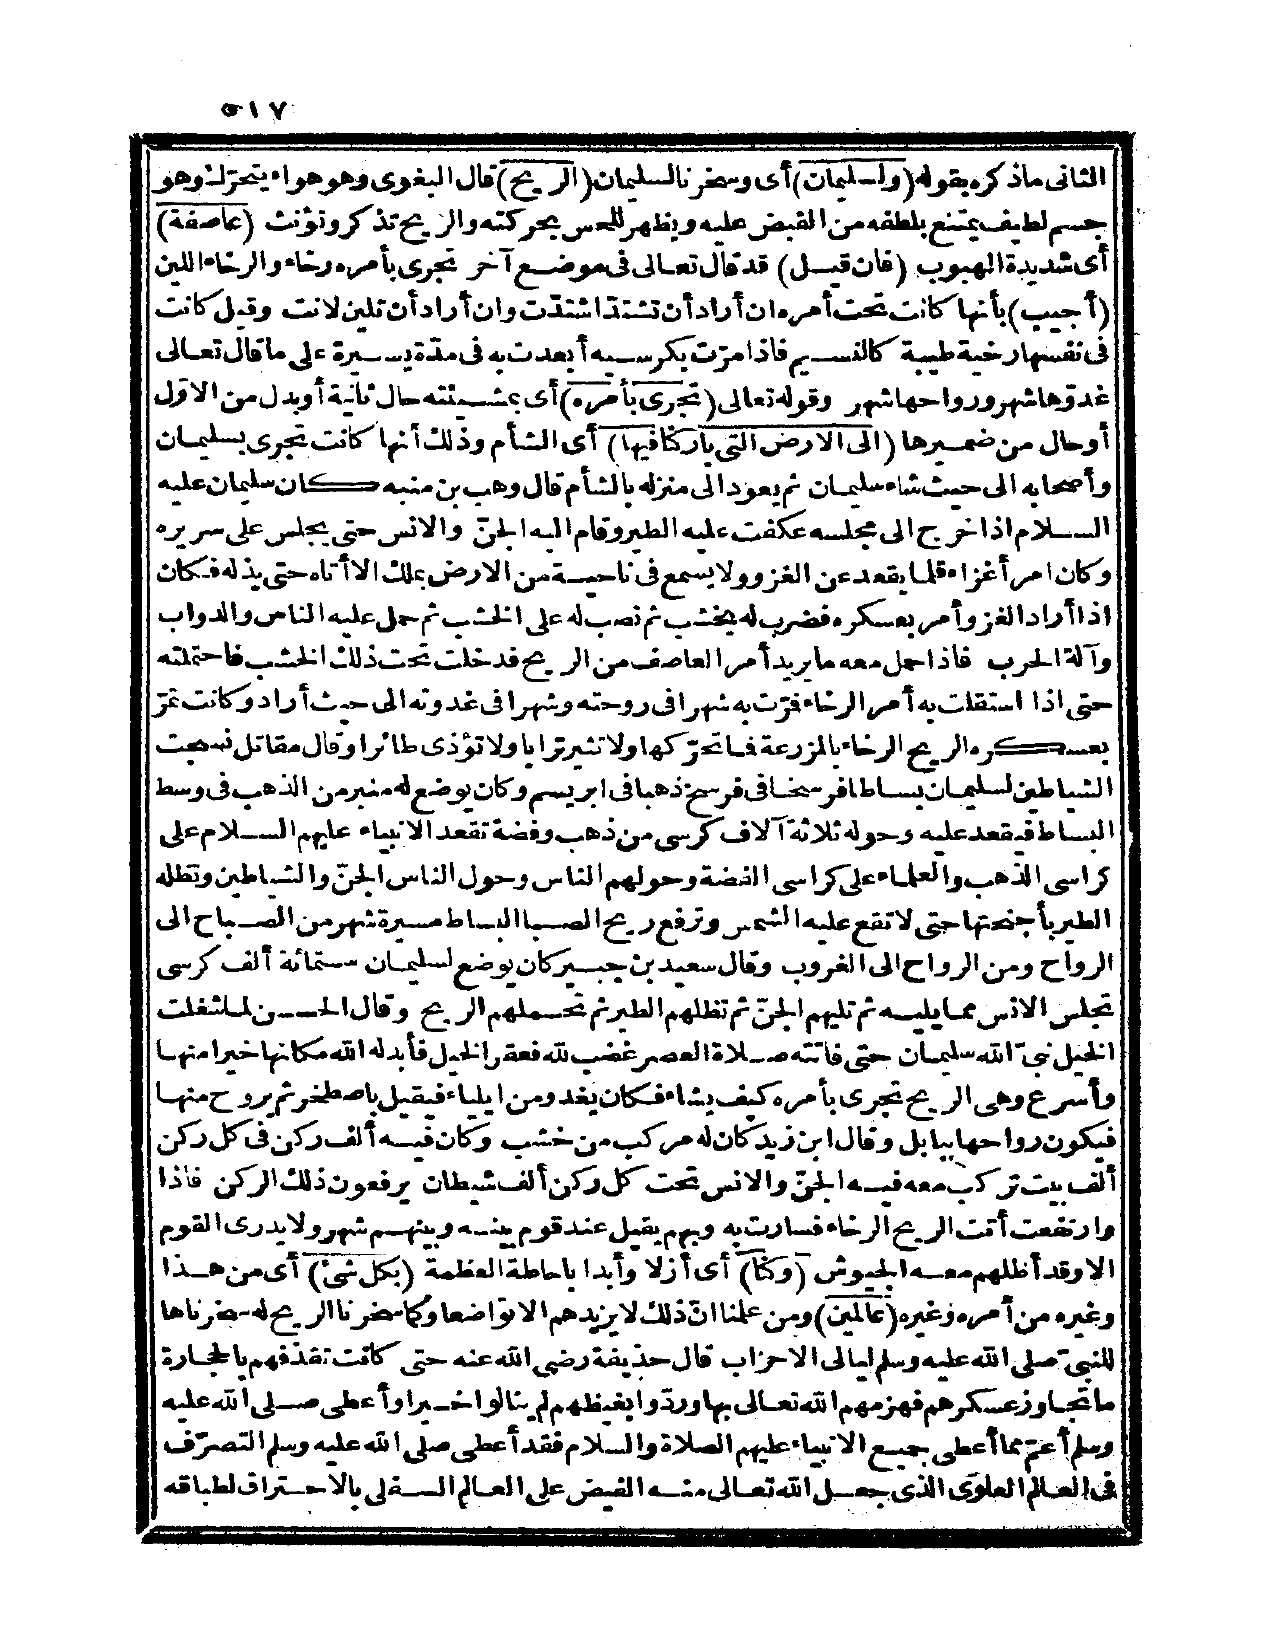 ٥١٧
الثانى ماذكره بقوله (ولسليمان) أى وسخرنا لسليمان (الريح) قال البغوى وهو هواء يتحرّك وهو
جسم لطيف يمتنع بلطفه من القبض عليه ويظهر للحس بحركته والريح تذكر وتؤنث (عاصفة)
أى شديدة الهبوب (فان قيل) قد قال تعالى فى موضع آخر تجرى بأمره رخاء والرخاء اللين
(أجيب) بأنها كانت تحت أمره ان أراد أن تشتدّ اشتدّت وان أراد أن تلين لانت وقيل كانت
فى نفسها رخية طيبة كالنسيم فاذا مرّت بكرسيه أبعدت به فى مدّة يسيرة على ما قال تعالى
غدوّها شهر ورواحها شهر وقوله تعالى (تجرى بأمره) أى بمشيئته حال ثانية أو بدل من الاوّل
أو حال من ضميرها (الى الارض التى باركنا فيها) أى الشأم وذلك أنها كانت تجرى بسليمان
وأصحابه الى حيث شاء سليمان ثم يعود الى منزله بالشأم قال وهب بن منبه كان سليمان عليه
السلام اذا خرج الى مجلسه عكفت عليه الطير وقام اليه الجنّ والانس حتى يجلس على سريره
وكان امرأ غزاء قلما يقعد عن الغزو ولا يسمع فى ناحية من الارض بملك الا أتاه حتى يذله فكان
اذا أراد الغزو أمر بعسكره فضرب له بخشب ثم نصب له على الخشب ثم حمل عليه الناس والدواب
وآلة الحرب فاذا حمل معه ما يريد أمر العاصف من الريح فدخلت تحت ذلك الخشب فاحتملته
حتى اذا استقلت به أمر الرخاء فمرّت به شهرا فى روحته وشهرا فى غدوته الى حيث أراد وكانت تمرّ
بعسكره الريح الرخاء بالمزرعة فما تحرّكها ولا تثير ترابا ولا تؤذى طائرا وقال مقاتل نسجت
الشياطين لسليمان بساطا فرسخا فى فرسخ ذهبا فى ابريسم وكان يوضع له منبر من الذهب فى وسط
البساط فيقعد عليه وحوله ثلاثة آلاف كرسى من ذهب وفضة تقعد الانبياء عليهم السلام على
كراسى الذهب والعلماء على كراسى الفضة وحولهم الناس وحول الناس الجنّ والشياطين وتظله
الطير بأجنحتها حتى لا تقع عليه الشمس وترفع ريح الصبا البساط مسيرة شهر من الصباح الى
الرواح ومن الرواح الى الغروب وقال سعيد بن جبير كان يوضع لسليمان ستمائة ألف كرسى
تجلس الانس مما يليه ثم تليهم الجنّ ثم تظلهم الطير ثم تحملهم الريح وقال الحسن لما شغلت
الخيل نبىّ الله سليمان حتى فاتته صلاة العصر غضب لله فعقر الخيل فأبدله الله مكانها خيرا منها
وأسرع وهى الريح تجرى بأمره كيف يشاء فكان يغدو من ايلياء فيقيل باصطخر ثم يروح منها
فيكون رواحها ببابل وقال ابن زيد كان له مركب من خشب وكان فيه ألف ركن فى كل ركن
ألف بيت تركب معه فيه الجنّ والانس تحت كل ركن ألف شيطان يرفعون ذلك الركن فاذا
وارتفعت أتت الريح الرخاء فسارت به وبهم يقيل عند قوم بينه وبينهم شهر ولا يدرى القوم
الا وقد أظلهم معه الجيوش (وكنا) أى أزلا وأبدا باحاطة العظمة (بكل شئ) أى من هذا
وغيره من أمره وغيره (عالمين) ومن علمنا انّ ذلك لا يزيدهم الا تواضعا وكما سخرنا الريح له سخرناها
للنبىّ صلى الله عليه وسلم ليالى الاحزاب قال حذيفة رضى الله عنه حتى كانت تقذفهم بالحجارة
ما تجاوز عسكرهم فهزمهم الله تعالى بها وردّوا بغيظهم لم ينالوا خيرا وأعطى صلى الله عليه
وسلم أعمّ مما أعطى جميع الانبياء عليهم الصلاة والسلام فقد أعطى صلى الله عليه وسلم التصرّف
فى العالم العلوى الذى جعل الله تعالى منه الفيض على العالم السفلى بالاختراق لطباقه